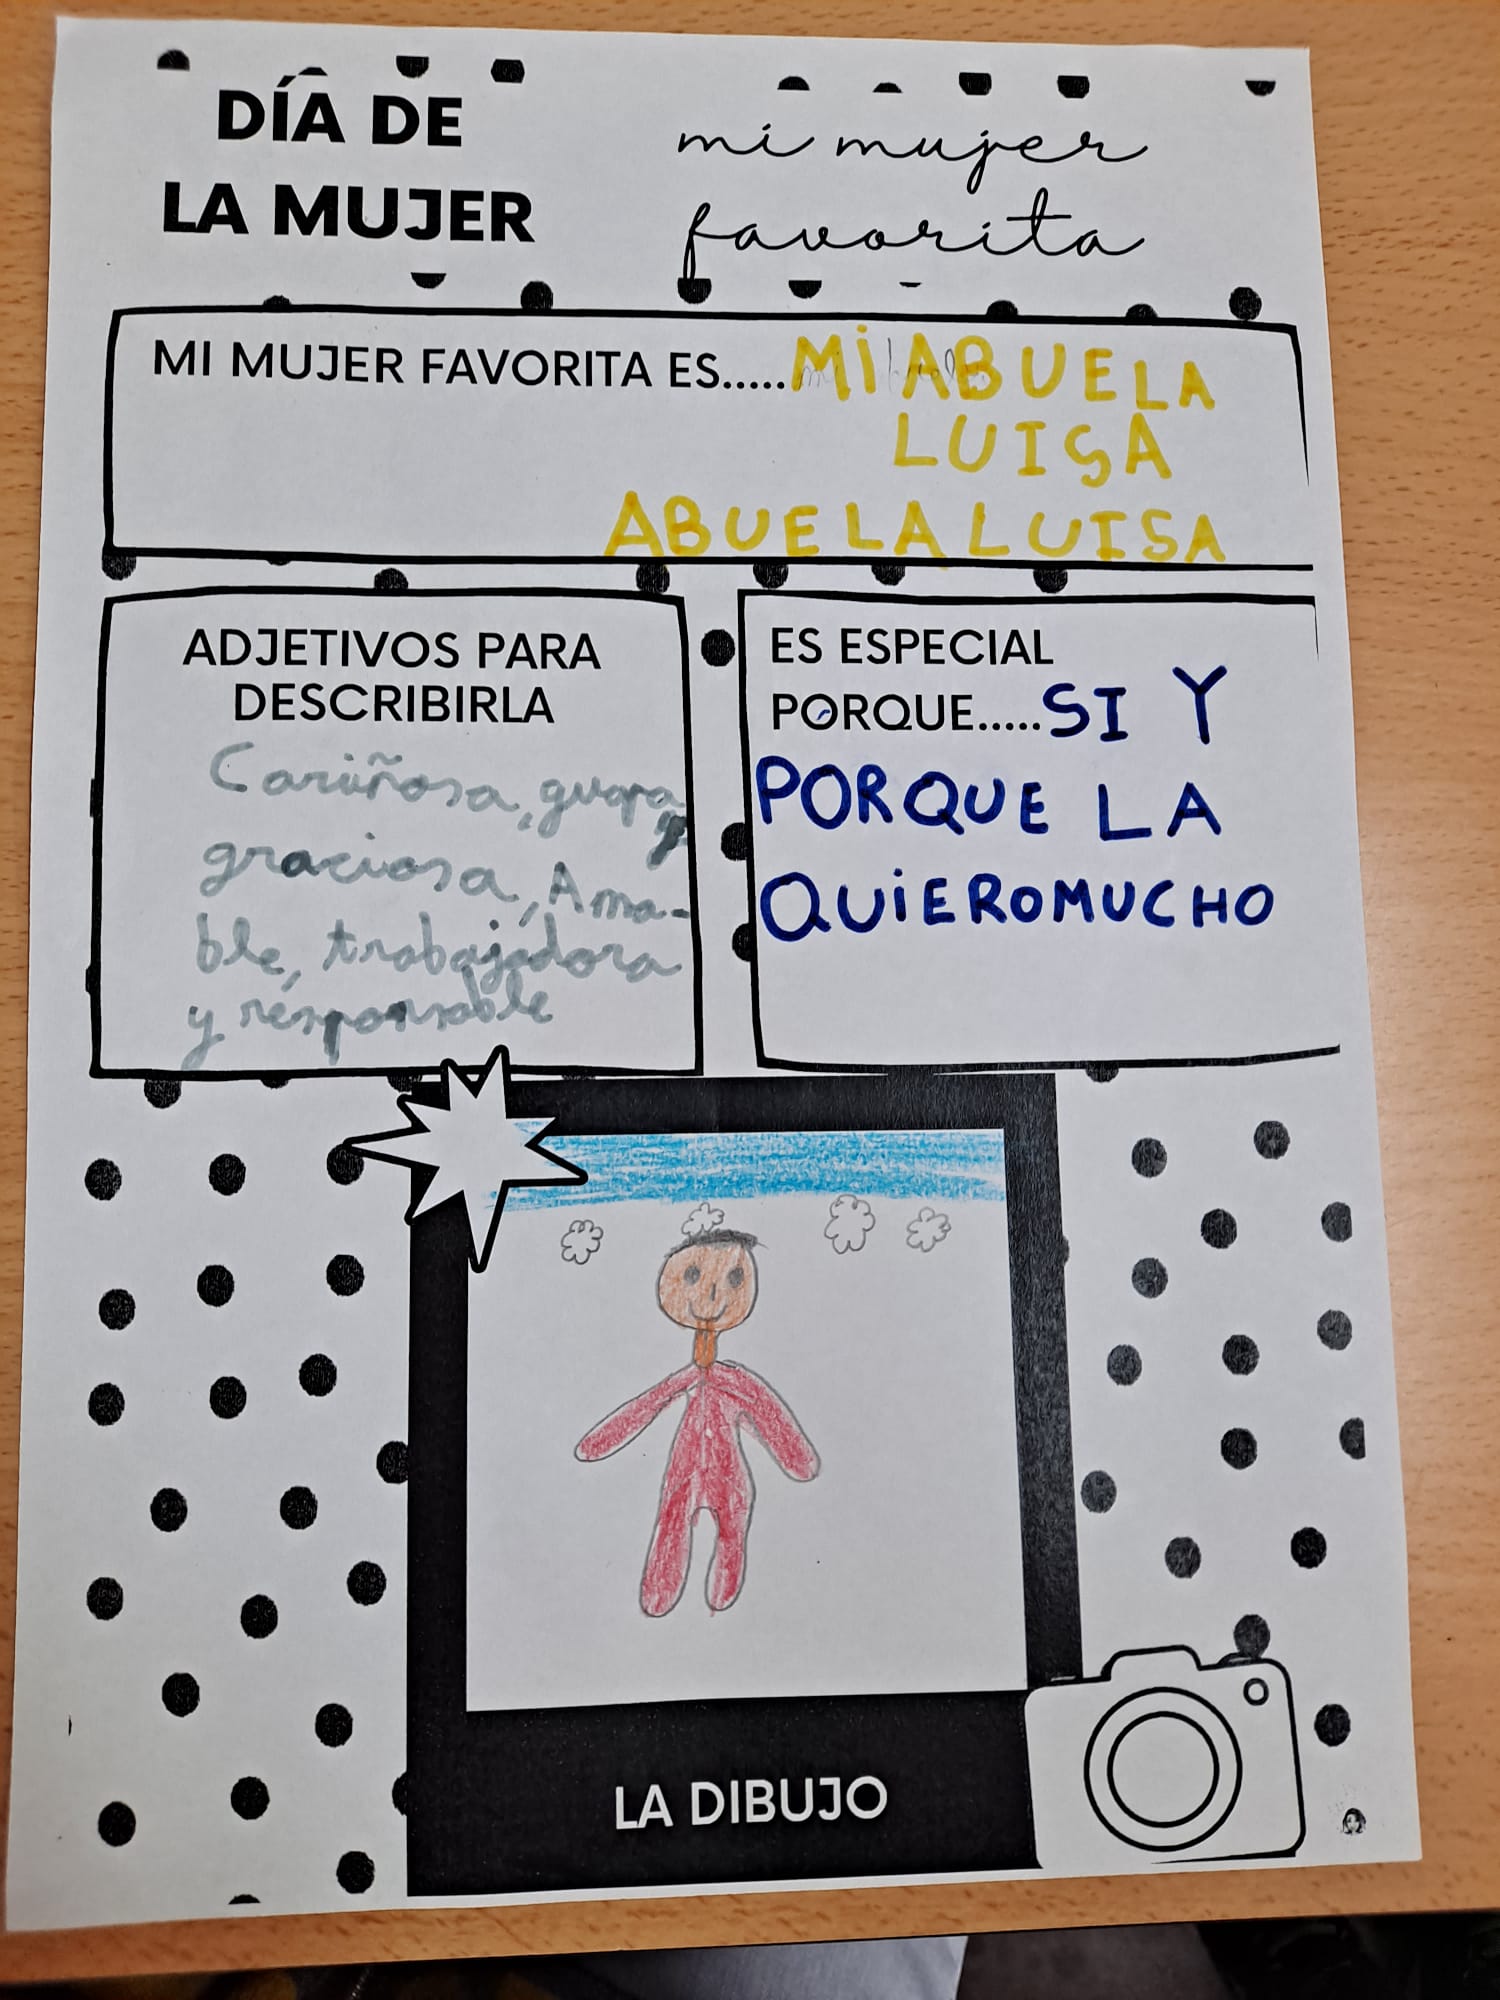 DÍA DE
LA MUJER
mi mujer
favorita
MI MUJER FAVORITA ES.....MI ABUELA
LUISA
ABUELA LUISA
ADJETIVOS PARA
DESCRIBIRLA
Cariñosa, guapa,
graciosa, Ama-
ble, trabajadora
y responsable
ES ESPECIAL
PORQUE.....SI Y
PORQUE LA
QUIERO MUCHO
LA DIBUJO